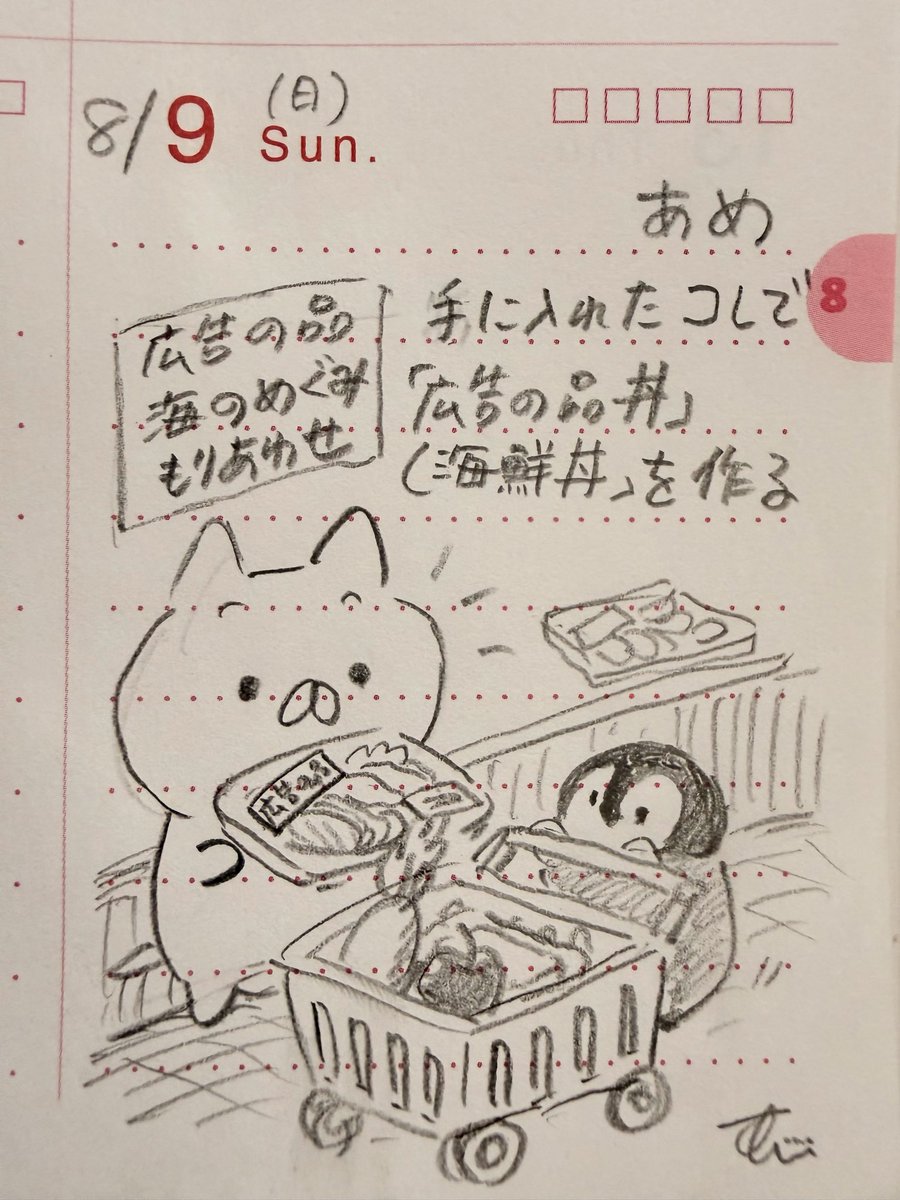 8/9(日)
Sun.
8
あめ
広告の品
海のめぐみ
もりあわせ
手に入れたコレで
「広告の品丼」
(海鮮丼」を作る
広告の品